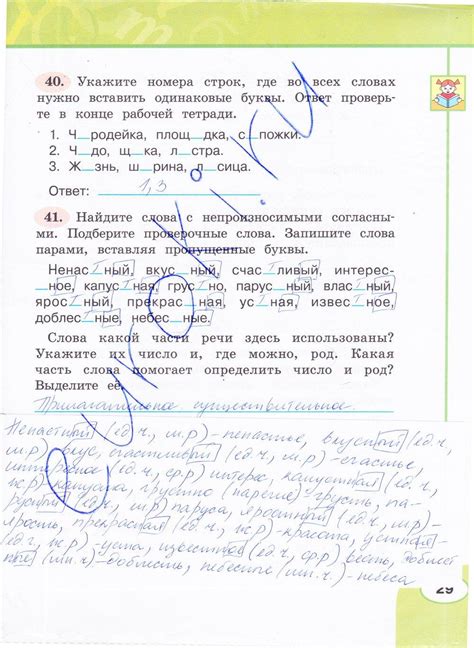 40. Укажите номера строк, где во всех словах
нужно вставить одинаковые буквы. Ответ проверь-
те в конце рабочей тетради.
1. Ч_родейка, площ_дка, с_пожки.
2. Ч_до, щ_ка, л_стра.
3. Ж_знь, ш_рина, л_сица.
Ответ: 1,3
41. Найдите слова с непроизносимыми согласны-
ми. Подберите проверочные слова. Запишите слова
парами, вставляя пропущенные буквы.
Ненас т ный, вкус_ный, счас т ливый, интерес-
_ное, капус т ная, грус т но, парус_ный, влас т ный,
ярос т ный, прекрас_ная, ус т ная, извес т ное,
доблес т ные, небес_ные.
Слова какой части речи здесь использованы?
Укажите их число и, где можно, род. Какая
часть слова помогает определить число и род?
Выделите её.
Прилагательное, существительное.
Ненастный (ед.ч., м.р) - ненастье, вкусный (ед.ч.,
м.р) - вкус, счастливый (ед.ч., м.р) - счастье,
интересное (ед.ч, ср.р) интерес, капустная (ед.ч,
ж.р) - капуста, грустно (наречие) - грусть, па-
русный (ед.ч, м.р) паруса, яростный (ед.ч, м.р) -
ярость, прекрасная (ед.ч, ж.р) - красота, устная -
(ед.ч, ж.р) - уста, известное (ед.ч, ср.р) весть, доблест
ные (мн.ч) - доблесть, небесные (мн.ч.) - небеса
29
e-uroki.ru